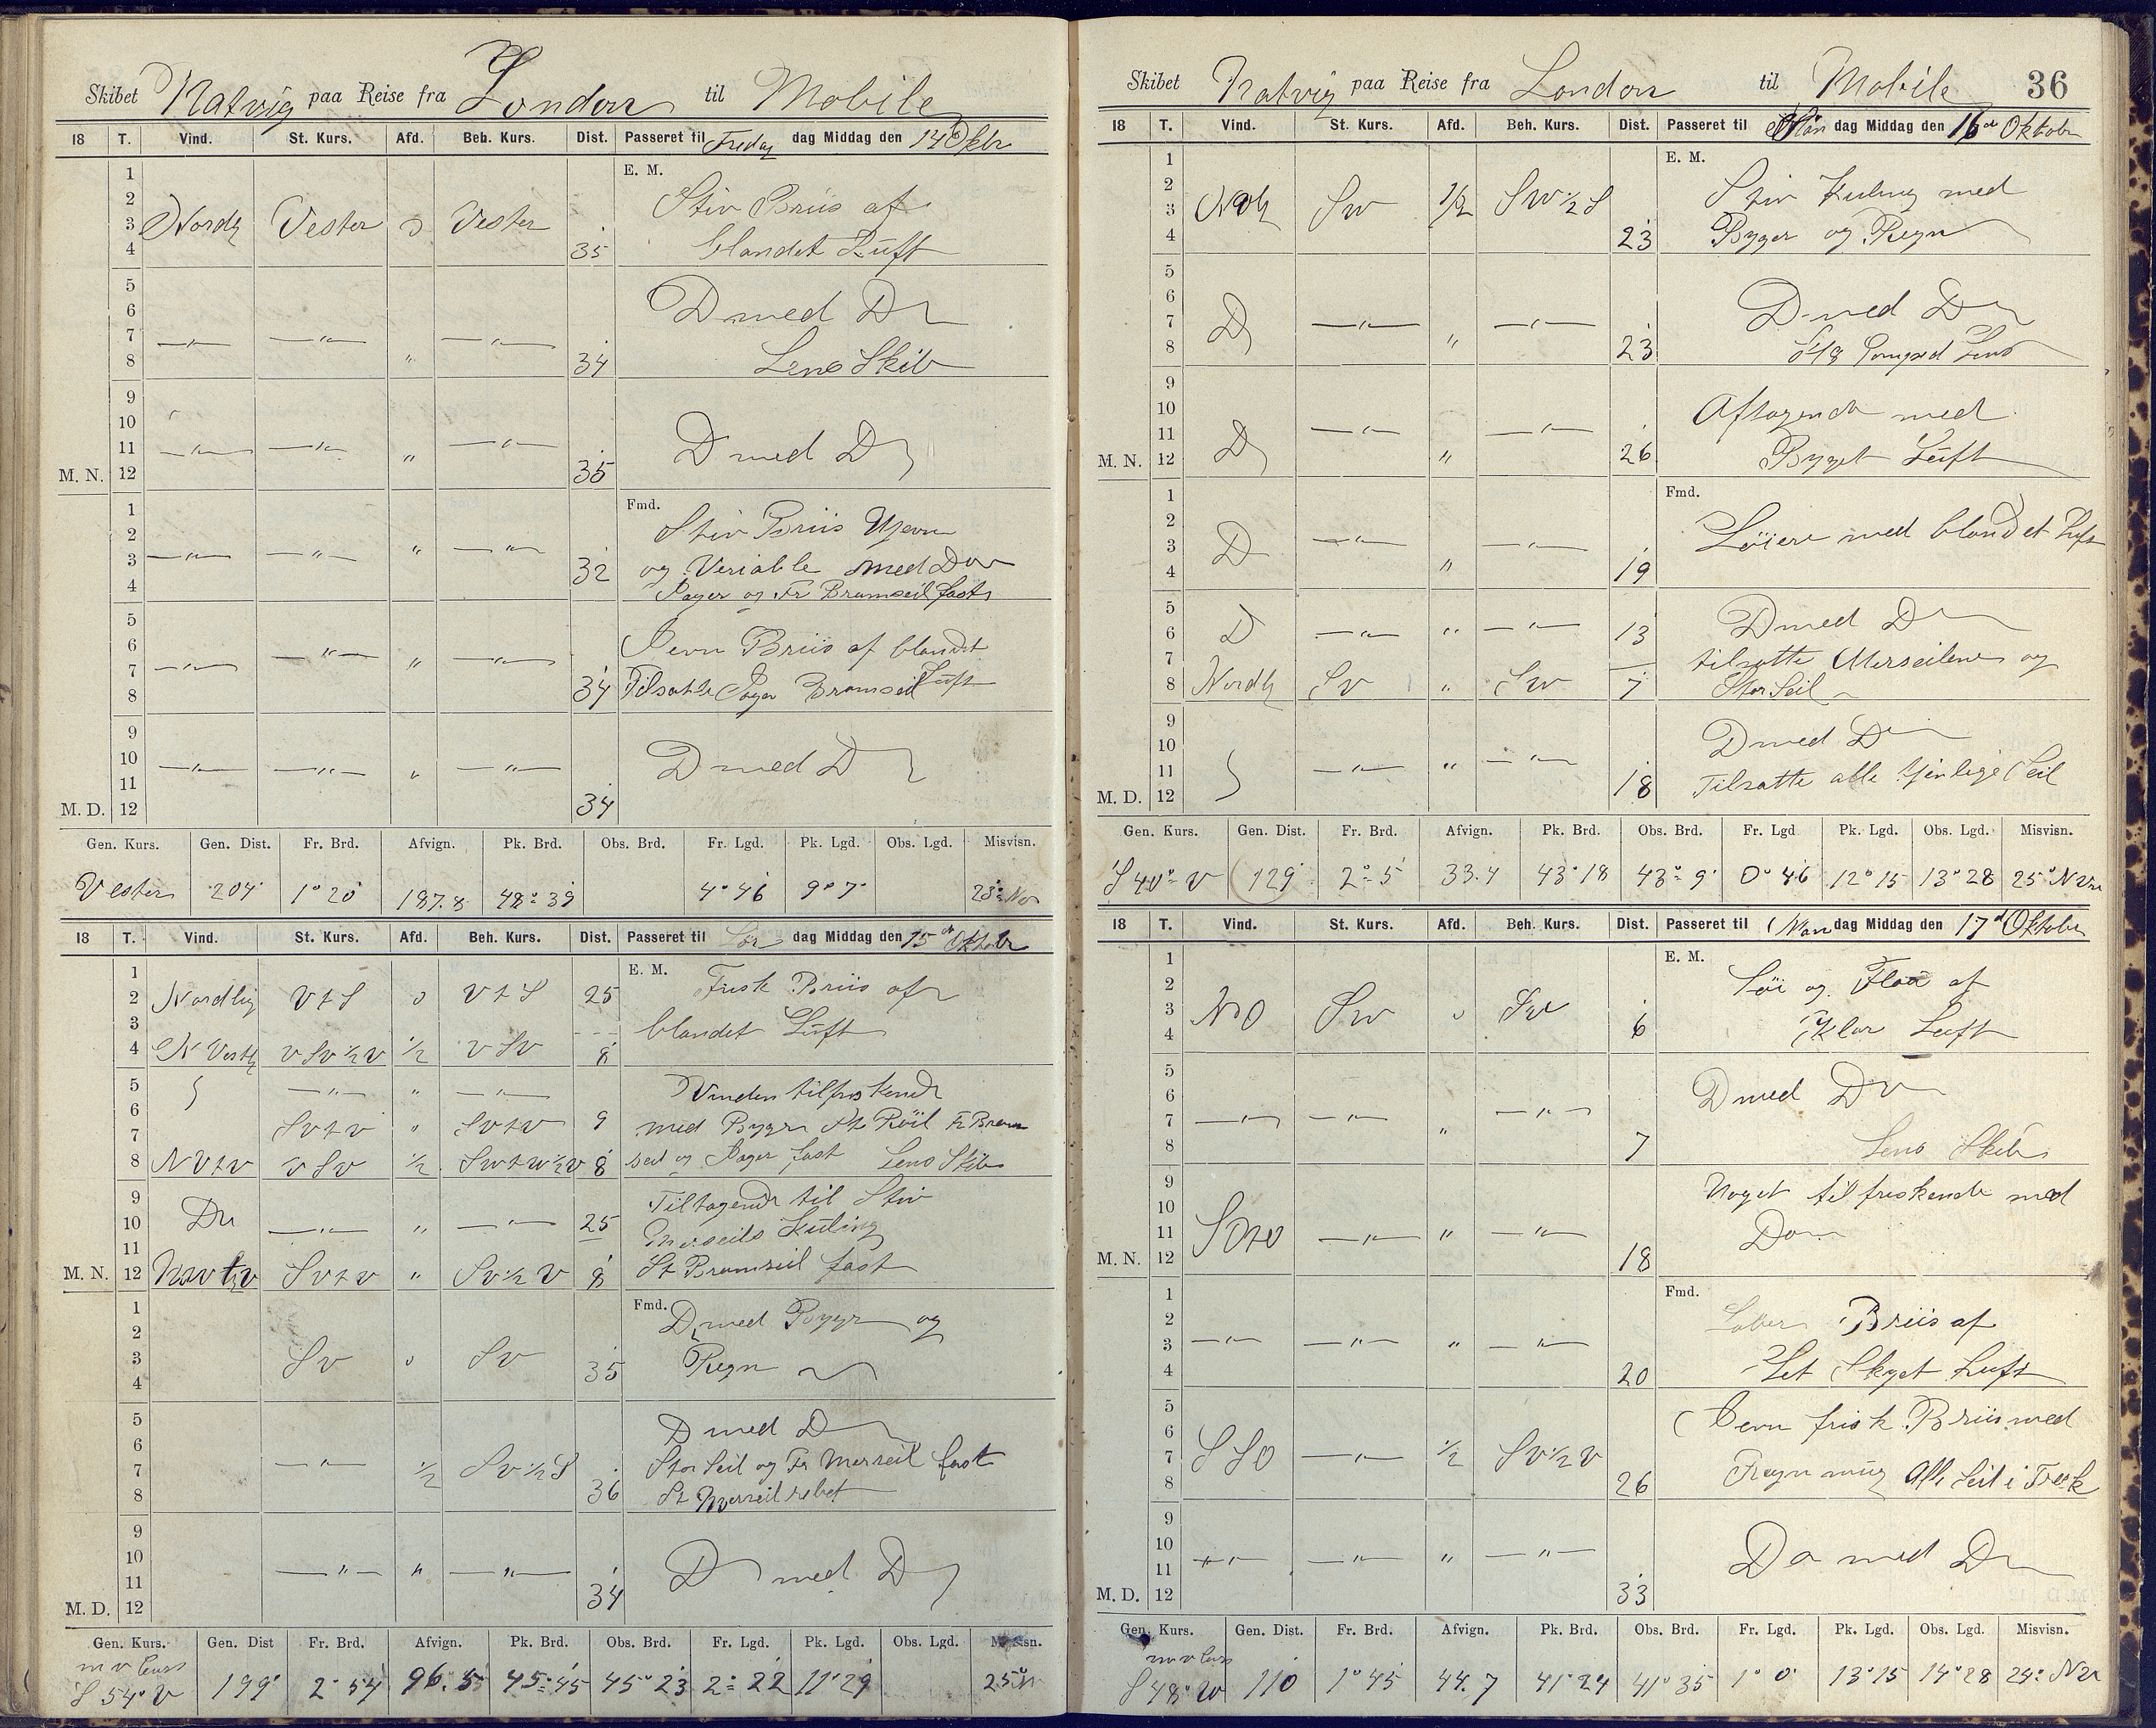 Skibet Natvig paa Reise fra London til Mobile
18 T. Vind. St. Kurs. Afd. Beh. Kurs. Dist. Passeret til Fredag dag Middag den 14 Oktbr
E. M.
1
2
3 Nordlg Vester 0 Vester Stiv Briis af
4 35 blandet Luft
5
6 D med D
7 —"— —"— —"—
8 " 34 Lens Skib
9
10
11 —"— —"— " —"— D med D
M. N. 12 35
Fmd.
1 Stiv Briis Ujevn
2
3 —"— —"— " —"— 32 og Veriable med Do
4 Jager og Fr Bramseil fast
5
6 Jevn Briis af blandet
7 —"— —"— " —"— Luft
8 34 Tilsatte Jager Bramseil
9
10 —"— —"— " —"— D med D
11
M. D. 12 34
Gen. Kurs. Gen. Dist. Fr. Brd. Afvign. Pk. Brd. Obs. Brd. Fr. Lgd. Pk. Lgd. Obs. Lgd. Misvisn.
Vester 204 1° 20 187.8 48° 39 4° 46 9° 7 23°
18 T. Vind. St. Kurs. Afd. Beh. Kurs. Dist. Passeret til Lør dag Middag den 15 de Oktobr
E. M.
1 Frisk Briis af
2 Nordlig V t S 0 V t S 25
3 blandet Luft
4 N Vestlg V Sv ½ V ½ V SV 8
5 —"— " —"— Vinden tilfriskende
6
7 Sv t v " Sv t v 9 med Byger St Röil Fr Bram
8 N V t v V Sv ½ Sw t w ½ v 8 seil og Jager fast Lens Skib
9 Tiltagende til Stiv
10 Do —"— " —"— 25 Merseils Kuling
11
M. N. 12 Sv t v " Sv ½ V 8 St Bramseil fast
Fmd.
1 D med Byger og
2
3 Sv 0 Sv 35 Regn
4
5 D med D
6
7 —"— ½ Sv ½ S Stor Seil og Fr Merseil fast
8 36 St Merseil rebet
9
10 —"— " —"— D med D
11
M. D. 12 34
Gen. Kurs. Gen. Dist Fr. Brd. Afvign. Pk. Brd. Obs. Brd. Fr. Lgd. Pk. Lgd. Obs. Lgd. Misvisn.
S 54° V 199 2° 54 96.5 45° 45 45° 23 2° 22 11° 29 25°
36
Skibet Natvig paa Reise fra London til Mobile
18 T. Vind. St. Kurs. Afd. Beh. Kurs. Dist. Passeret til dag Middag den 16 de Oktobr
E. M.
1
2 Stiv Kuling med
3 Sw ½ Sw ½ S
4 23 Byger og Regn
5
6 D med D
7 D —"— —"—
8 " 23 Pompsd Lens
9
10 Aftagende med
11 —"— —"—
M. N. 12 D " 26 Byget Luft
Fmd.
1
2 Löiere med blandet Luft
3 D —"— —"—
4 " 19
5
6 D —"— " —"— 13 D med D
7 tilsatte Merseilene og
8 Nordlg Sv " Sw 7 Stor Seil
9
10 D med D
11 —"— " —"— 18 Tilsatte alle tjenlige Seil
M. D. 12
Gen. Kurs. Gen. Dist. Fr. Brd. Afvign. Pk. Brd. Obs. Brd. Fr. Lgd Pk. Lgd. Obs. Lgd. Misvisn.
S 40° V 129 2° 5 33.4 43° 18 43° 9 0° 46 12° 15 13° 28 25°
18 T. Vind. St. Kurs. Afd. Beh. Kurs. Dist. Passeret til Man dag Middag den 17 d Oktober
E. M.
1
2 Löi og Flau af
3 NO Sw 0 Sw
4 6 Klar Luft
5
6 D med D
7 —"— —"— —"—
8 " 7 Lens Skib
9
10 Noget tilfriskende med
11 —"— " —"— Do
M. N. 12 18
Fmd.
1
2 Laber Briis af
3 —"— —"— " —"—
4 20 Let Skyet Luft
5
6 Jevn frisk Briis med
7 S SO —"— ½ Sv ½ V
8 26 Alle Seil i Træk
9
10 —"— —"— " —"— Do med D
11
M. D. 12 33
Gen. Kurs. Gen. Dist. Fr. Brd. Afvign. Pk. Brd. Obs. Brd. Fr. Lgd. Pk. Lgd. Obs. Lgd. Misvisn.
S 48° W 110 1° 45 44.7 41° 24 41° 35 1° 0 13° 15 14° 28 24° NV